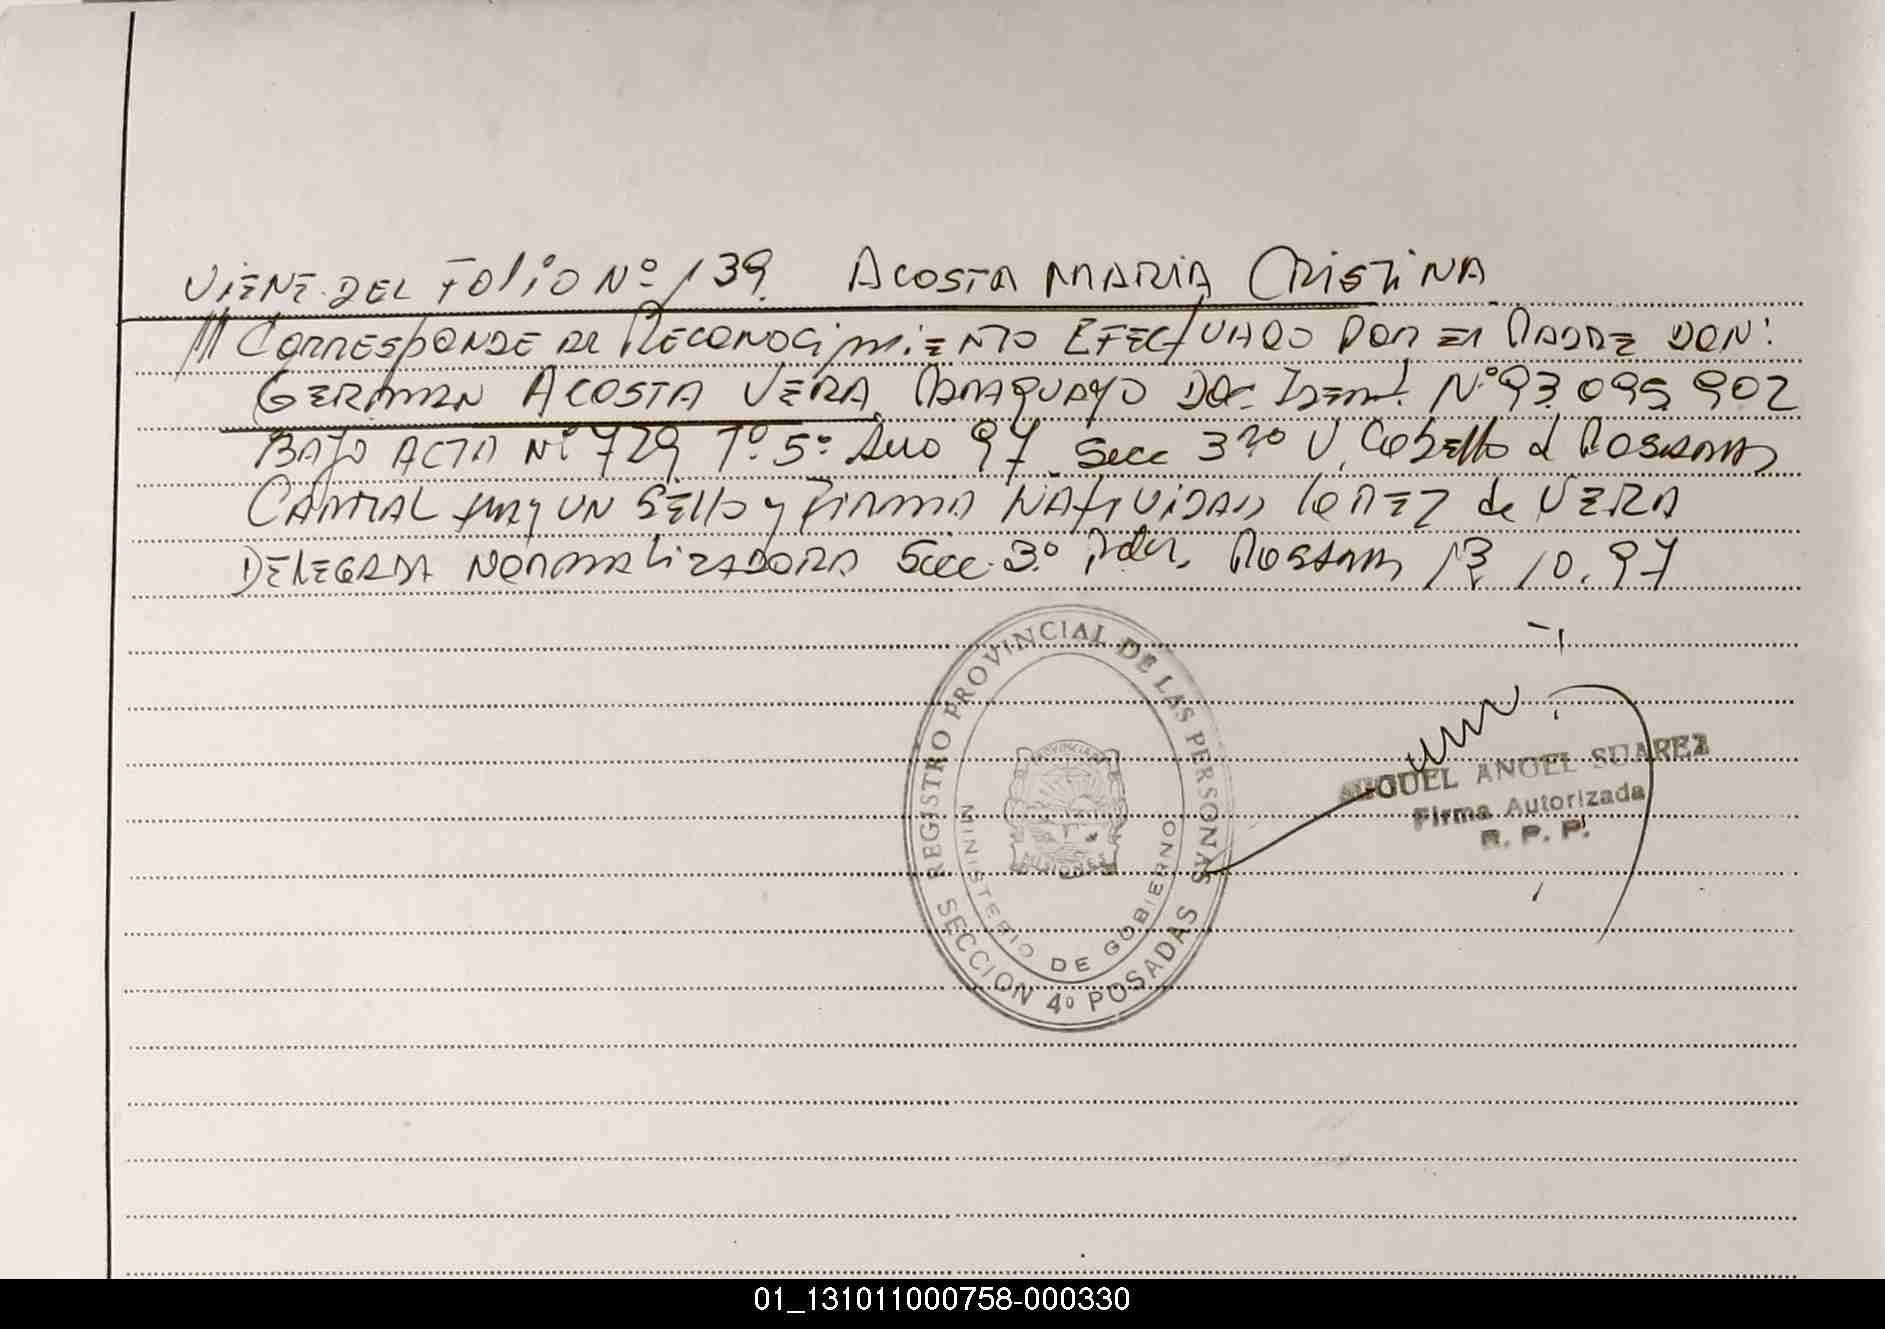 VIENE DEL FOLIO Nº 139. ACOSTA MARIA CRISTINA
/// CORRESPONDE AL RECONOCIMIENTO EFECTUADO POR EL PADRE DON:
GERMAN ACOSTA VERA PARAGUAYO DOC. IDENT. Nº 93.095.902
BAJO ACTA Nº 729 Tº 5º Año 97 Secc 3ra V. Cabello d POSADAS
CAPITAL hay UN SELLO y FIRMA NATIVIDAD LOPEZ de VERA
DELEGADA NORMALIZADORA Secc. 3º POSADAS 13.10.97
REGISTRO PROVINCIAL DE LAS PERSONAS
PROVINCIA
MISIONES
MINISTERIO DE GOBIERNO
SECCION 4º POSADAS
MIGUEL ANGEL SUAREZ
Firma Autorizada
R. P. P.
01_131011000758-000330